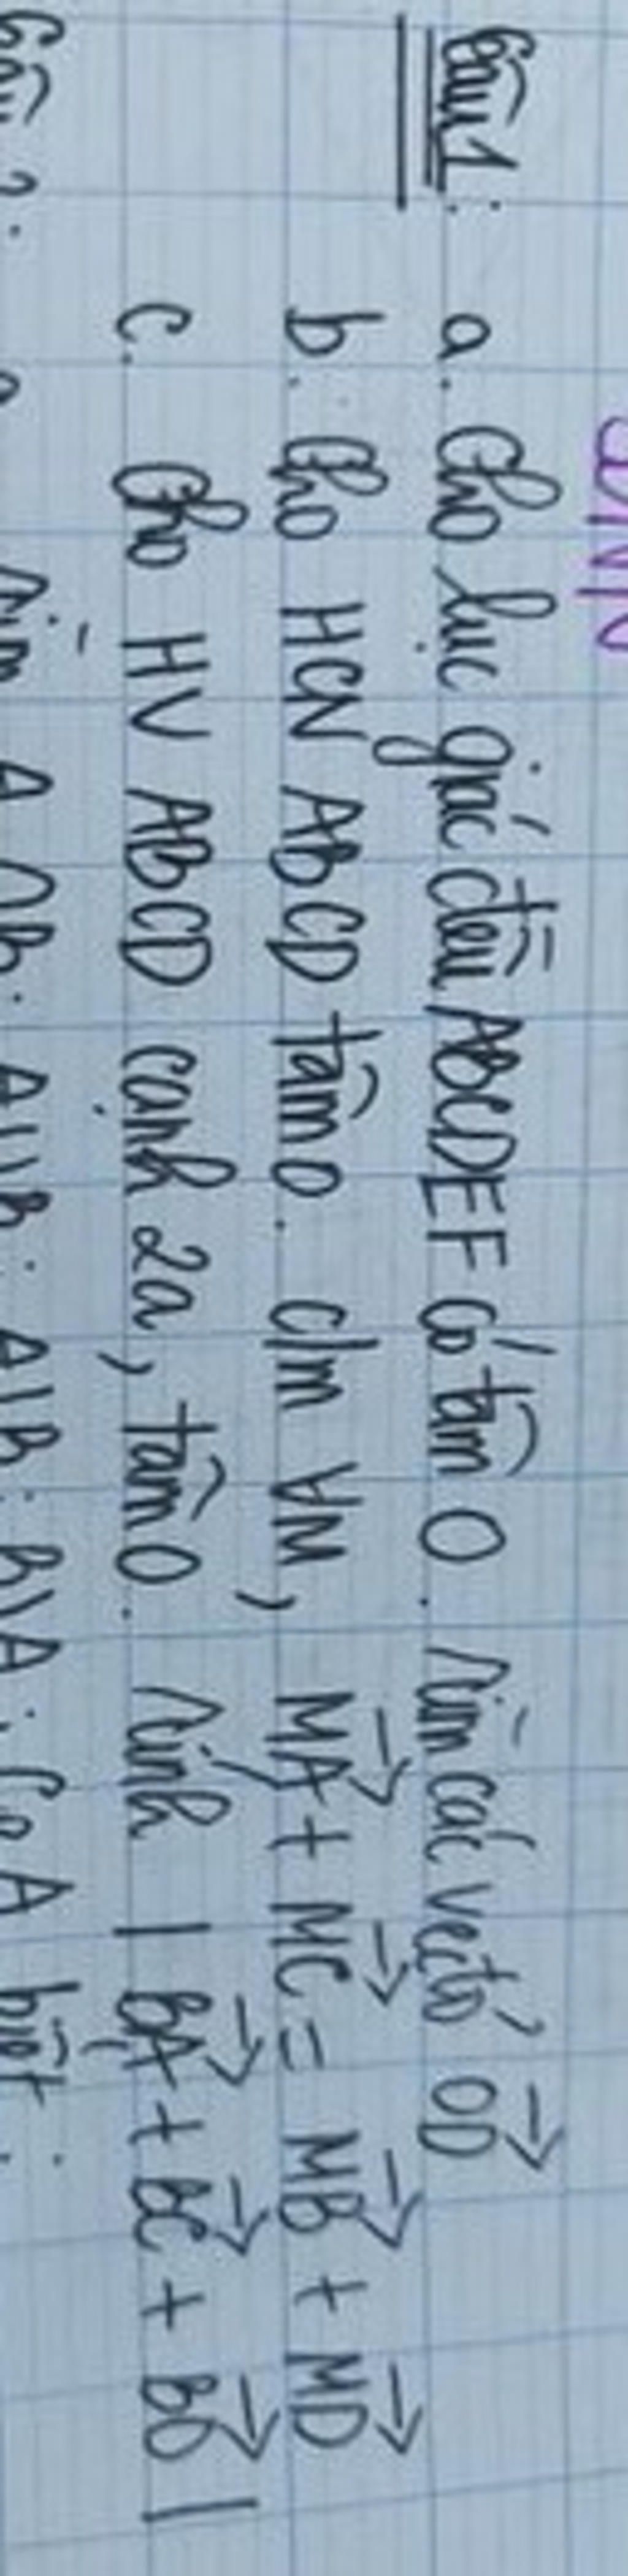 Câu 1: a. Cho lục giác đều ABCDEF có tâm O. Tìm các vectơ $\overrightarrow{OD}$
b. Cho HCN ABCD tâm O. C/m ∀M, $\overrightarrow{MA} + \overrightarrow{MC} = \overrightarrow{MB} + \overrightarrow{MD}$
c. Cho HV ABCD cạnh 2a, tâm O. Tính $|\overrightarrow{BA} + \overrightarrow{BC} + \overrightarrow{BO}|$